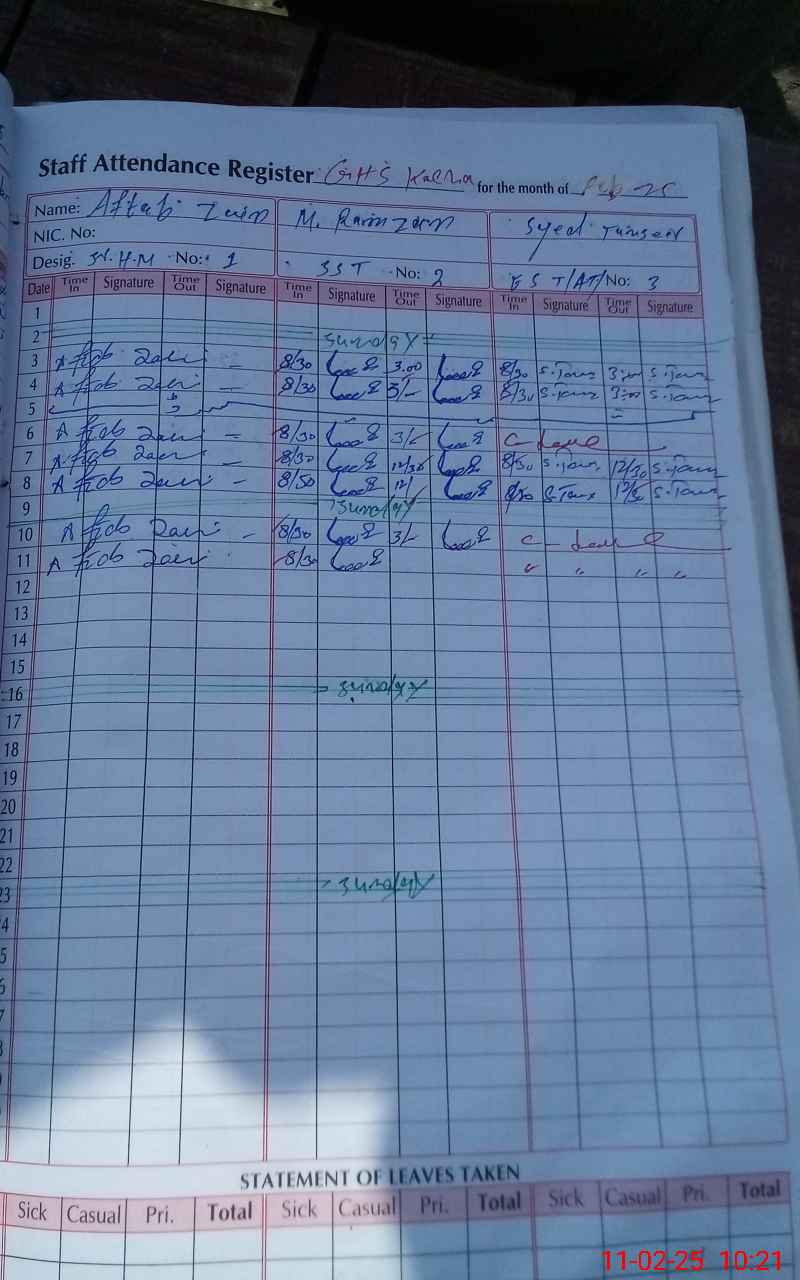 Staff Attendance Register GHS for the month of Feb-25
Name: Aftab Zain M. Syed
NIC. No:
Desig. H.M No: 1 SST No: 2 No: 3
Date Time In Signature Time Out Signature Time In Signature Time Out Signature Time In Signature Time Out Signature
1
2 Sunday
3 Aftab Zain - 8/30 3.00 8/30 S.Tans 3:00 S.Tans
4 Aftab Zain - 8/30 3/- 8/30 S.Tans 3:00 S.Tans
5
6 Aftab Zain - 8/30 3/- C-Leave
7 Aftab Zain - 8/30 12/30 8/30 S.Tans 12/30 S.Tans
8 Aftab Zain - 8/30 12/ 8/30 S.Tans S.Tans
9 Sunday
10 Aftab Zain - 8/30 3/- C-Leave
11 Aftab Zain - 8/30 " " " "
12
13
14
15
16 Sunday
17
18
19
20
21
22
23 Sunday
4
5
STATEMENT OF LEAVES TAKEN
Sick Casual Pri. Total Sick Casual Pri. Total Sick Casual Pri. Total
11-02-25 10:21